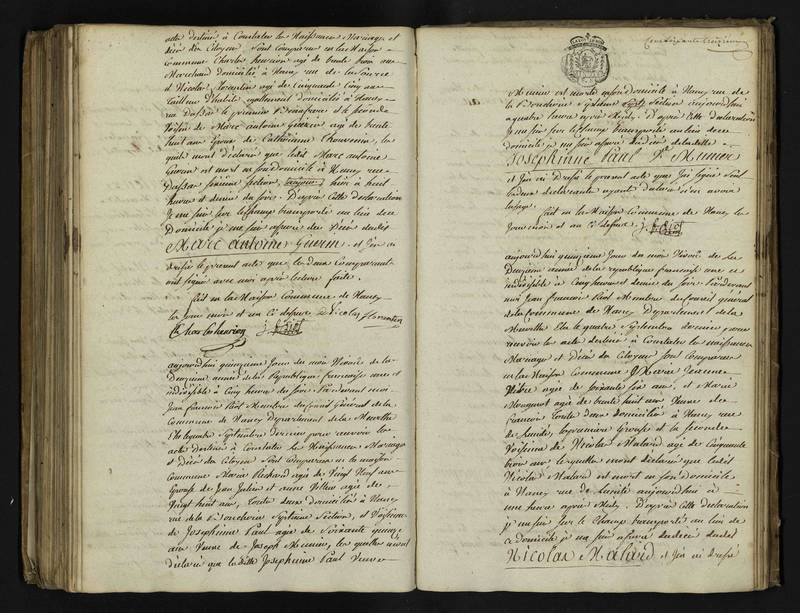 acte destinés à Constater les Naissances Mariages et
décés des Citoyens Sont Comparus en la Maison
Commune Charles henrion agé de trente trois ans
Marchand domicilié à Nancy rue de la Source
et Nicolas florentin agé de Cinquante Cinq ans
tailleur d'habits egalement domicilié à Nancy
rue d'assas le premier et le second
Voisin de Marc antoine Guerin agé de trente
huit ans Epoux de Catherine Thouvenin, les
quels m'ont déclaré que ledit Marc antoine
Guerin est mort en son domicile à Nancy rue
d'assas sixieme section, hier à huit
heures et demie du soir. D'après Cette déclaration
je me suis sur le champ transporté au lieu de ce
Domicile je me suis assuré du Décés dudit
Marc antoine Guerin et j'en ai
dressé le present acte que les deux Comparants
ont signé avec moi après lecture faite.
fait en la Maison Commune de Nancy
les Jour mois et an Ci dessus Nicolas florentin
Charles henrion
aujourd'hui quinzieme Jour du mois Nivose de la
Deuxieme année de la République française une et
indivisible à Cinq heures du soir Pardevant moi
Jean françois Membre du Conseil Général de la
Commune de Nancy Département de la Meurthe
Elu le quatre Septembre dernier pour recevoir les
actes destinés à Constater les Naissances Mariages
et Décés des Citoyens Sont Comparus en la maison
Commune Marie Richard agée de Vingt Neuf ans
Epouse de Jean Julien et anne agée de
Vingt huit ans, toutes deux domiciliées à Nancy
rue de la Boucherie Septieme Section, et Voisines
de Josephinne Paul agée de Soixante quinze
ans Veuve de Joseph Meunier, lesquelles m'ont
déclaré que ladite Josephinne Paul Veuve
Meunier est morte en son domicile à Nancy rue de
la Boucherie Septieme Section aujourd'hui
a quatre heures après Midy. D'après Cette déclaration
je me suis sur le champ transporté au lieu de ce
domicile je me suis assuré du décés de ladite
Josephinne Paul Ve Meunier
et j'en ai Dressé le présent acte que j'ai signé seul
les deux déclarantes ayant déclaré n'en avoir
l'usage.
fait en la Maison Commune de Nancy les
Jour mois et an Ci dessus
aujourd'hui quinzieme Jour du mois Nivose de la
Deuxieme année de la république française une et
indivisible à Cinq heures et demie du soir Pardevant
moi Jean françois Membre du Conseil général
de la Commune de Nancy Département de la
Meurthe Elu le quatre Septembre dernier pour
recevoir les actes destinés à Constater les naissances
Mariages et Décés des Citoyens sont Comparus
en la Maison Commune Marie Jeanne
agée de soixante six ans et Marie
agée de trente huit ans Veuve de
françois toutes deux domiciliées à Nancy rue
de la première Epouse et la seconde
Voisine de Nicolas Malard agé de Cinquante
trois ans lesquelles m'ont déclaré que ledit
Nicolas Malard est mort en son domicile
à Nancy rue de aujourd'hui à
une heure après Midy. D'après Cette déclaration
je me suis sur le Champ transporté au lieu de
ce domicile je me suis assuré du décés dudit
Nicolas Malard et j'en ai dressé